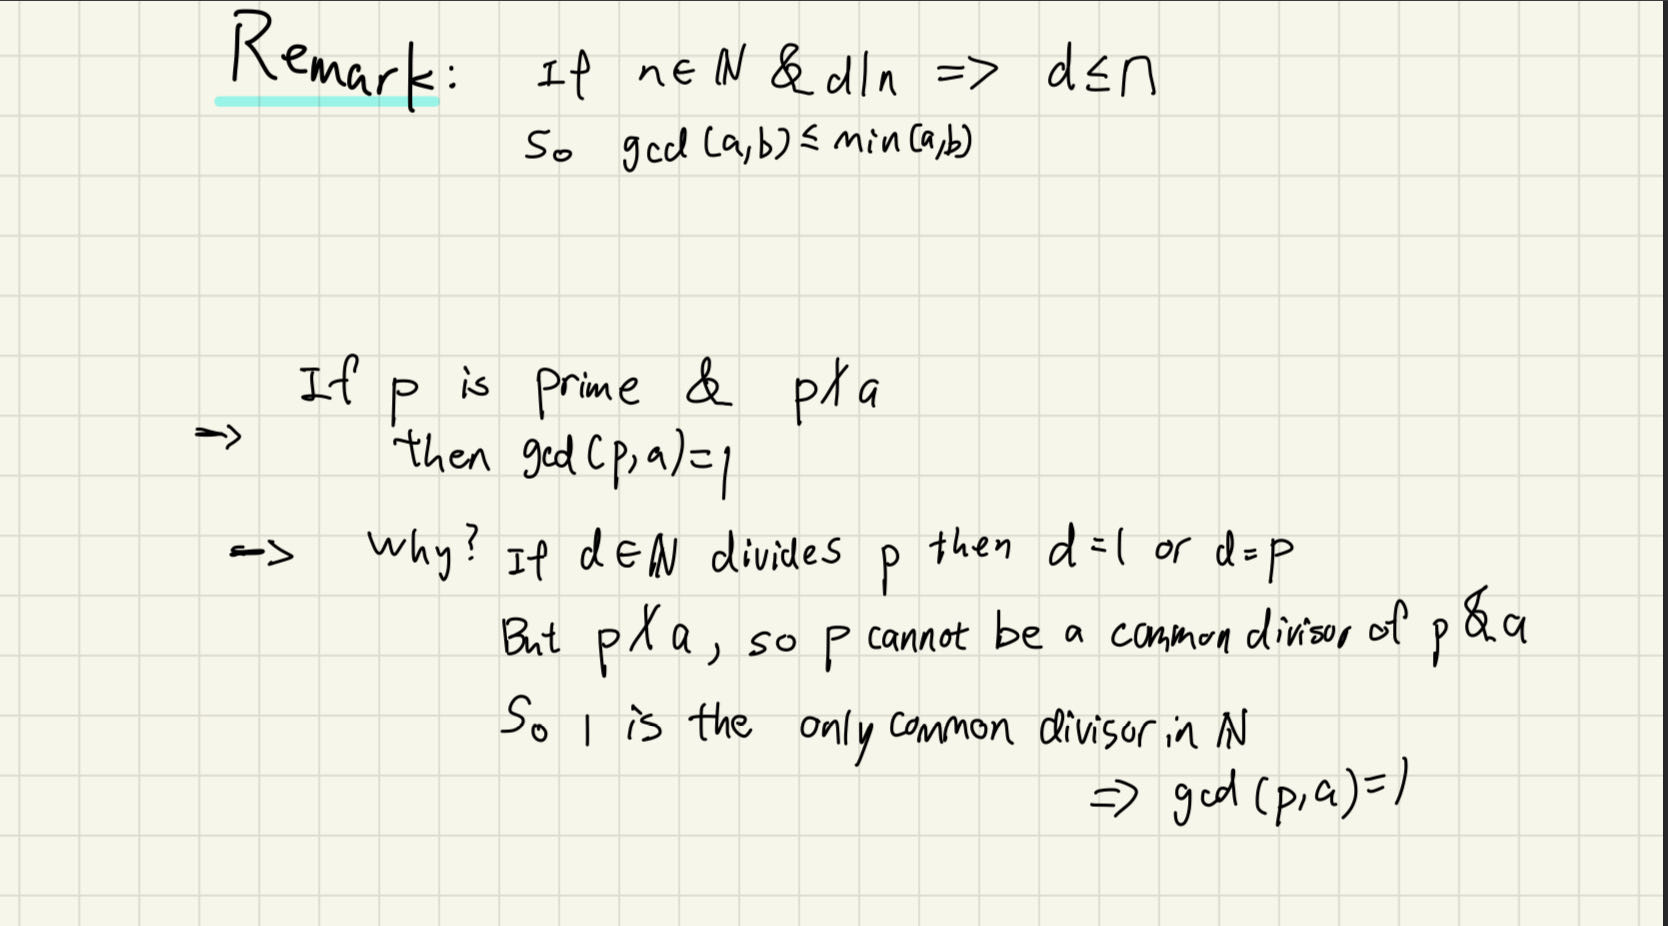 Remark: If n∈ℕ & d|n => d≤n
So gcd(a,b)≤min(a,b)
If p is prime & p∤a
=> then gcd(p,a)=1
=> why? If d∈ℕ divides p then d=1 or d=p
But p∤a, so p cannot be a common divisor of p & a
So 1 is the only common divisor in ℕ
=> gcd(p,a)=1